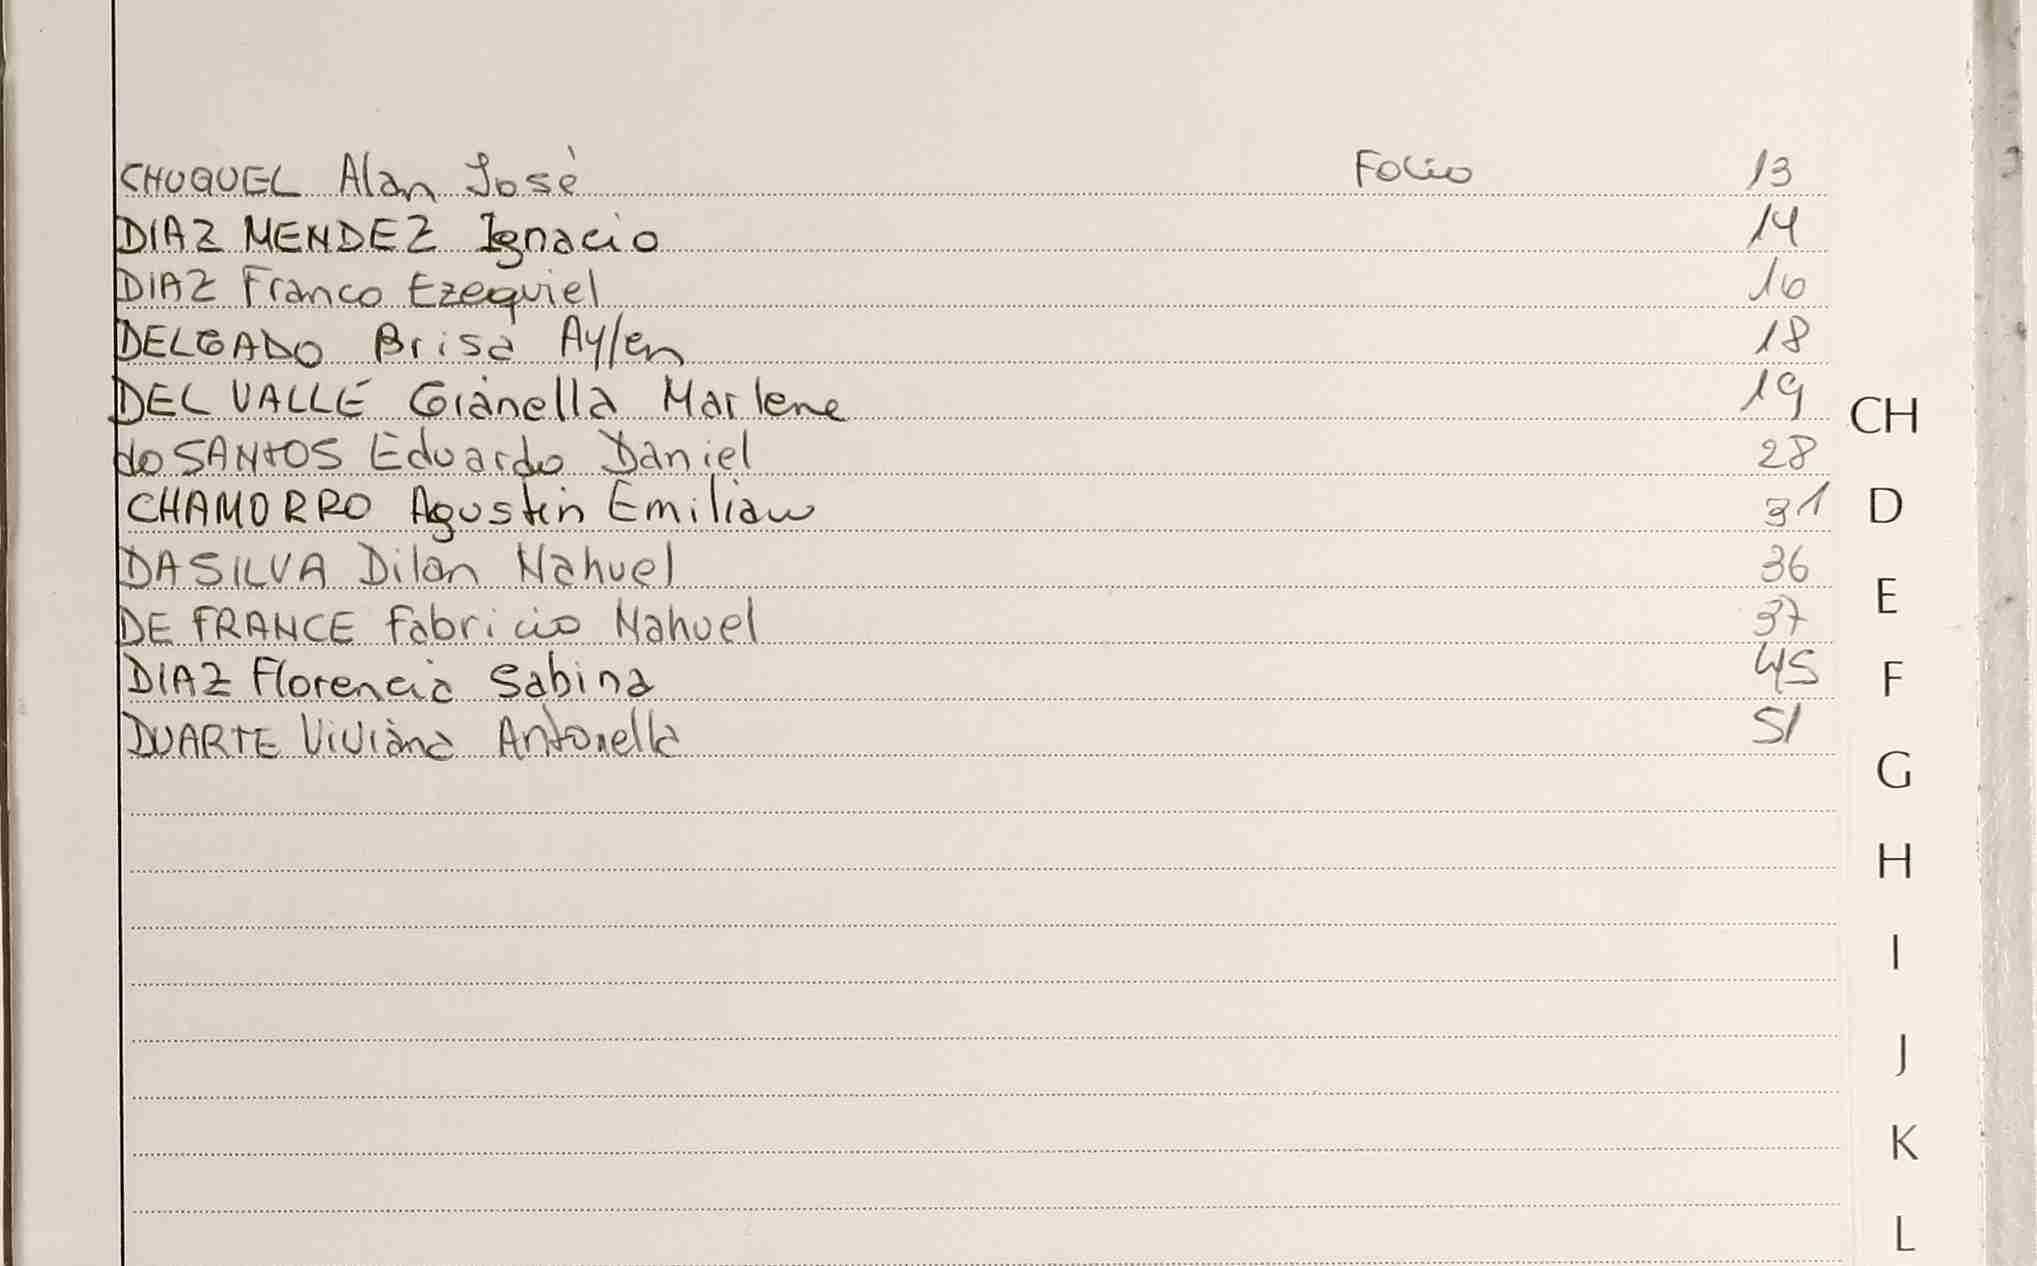 CHUQUEL Alan Josè Folio 13
DIAZ MENDEZ Ignacio 14
DIAZ Franco Ezequiel 16
DELGADO Brisa Aylen 18
DEL VALLE Gianella Marlene 19
do SANTOS Eduardo Daniel 28
CHAMORRO Agustin Emiliano 31
DA SILVA Dilan Nahuel 36
DE FRANCE Fabricio Nahuel 37
DIAZ Florencia Sabina 45
DUARTE Viviana Antonella 51
CH
D
E
F
G
H
I
J
K
L